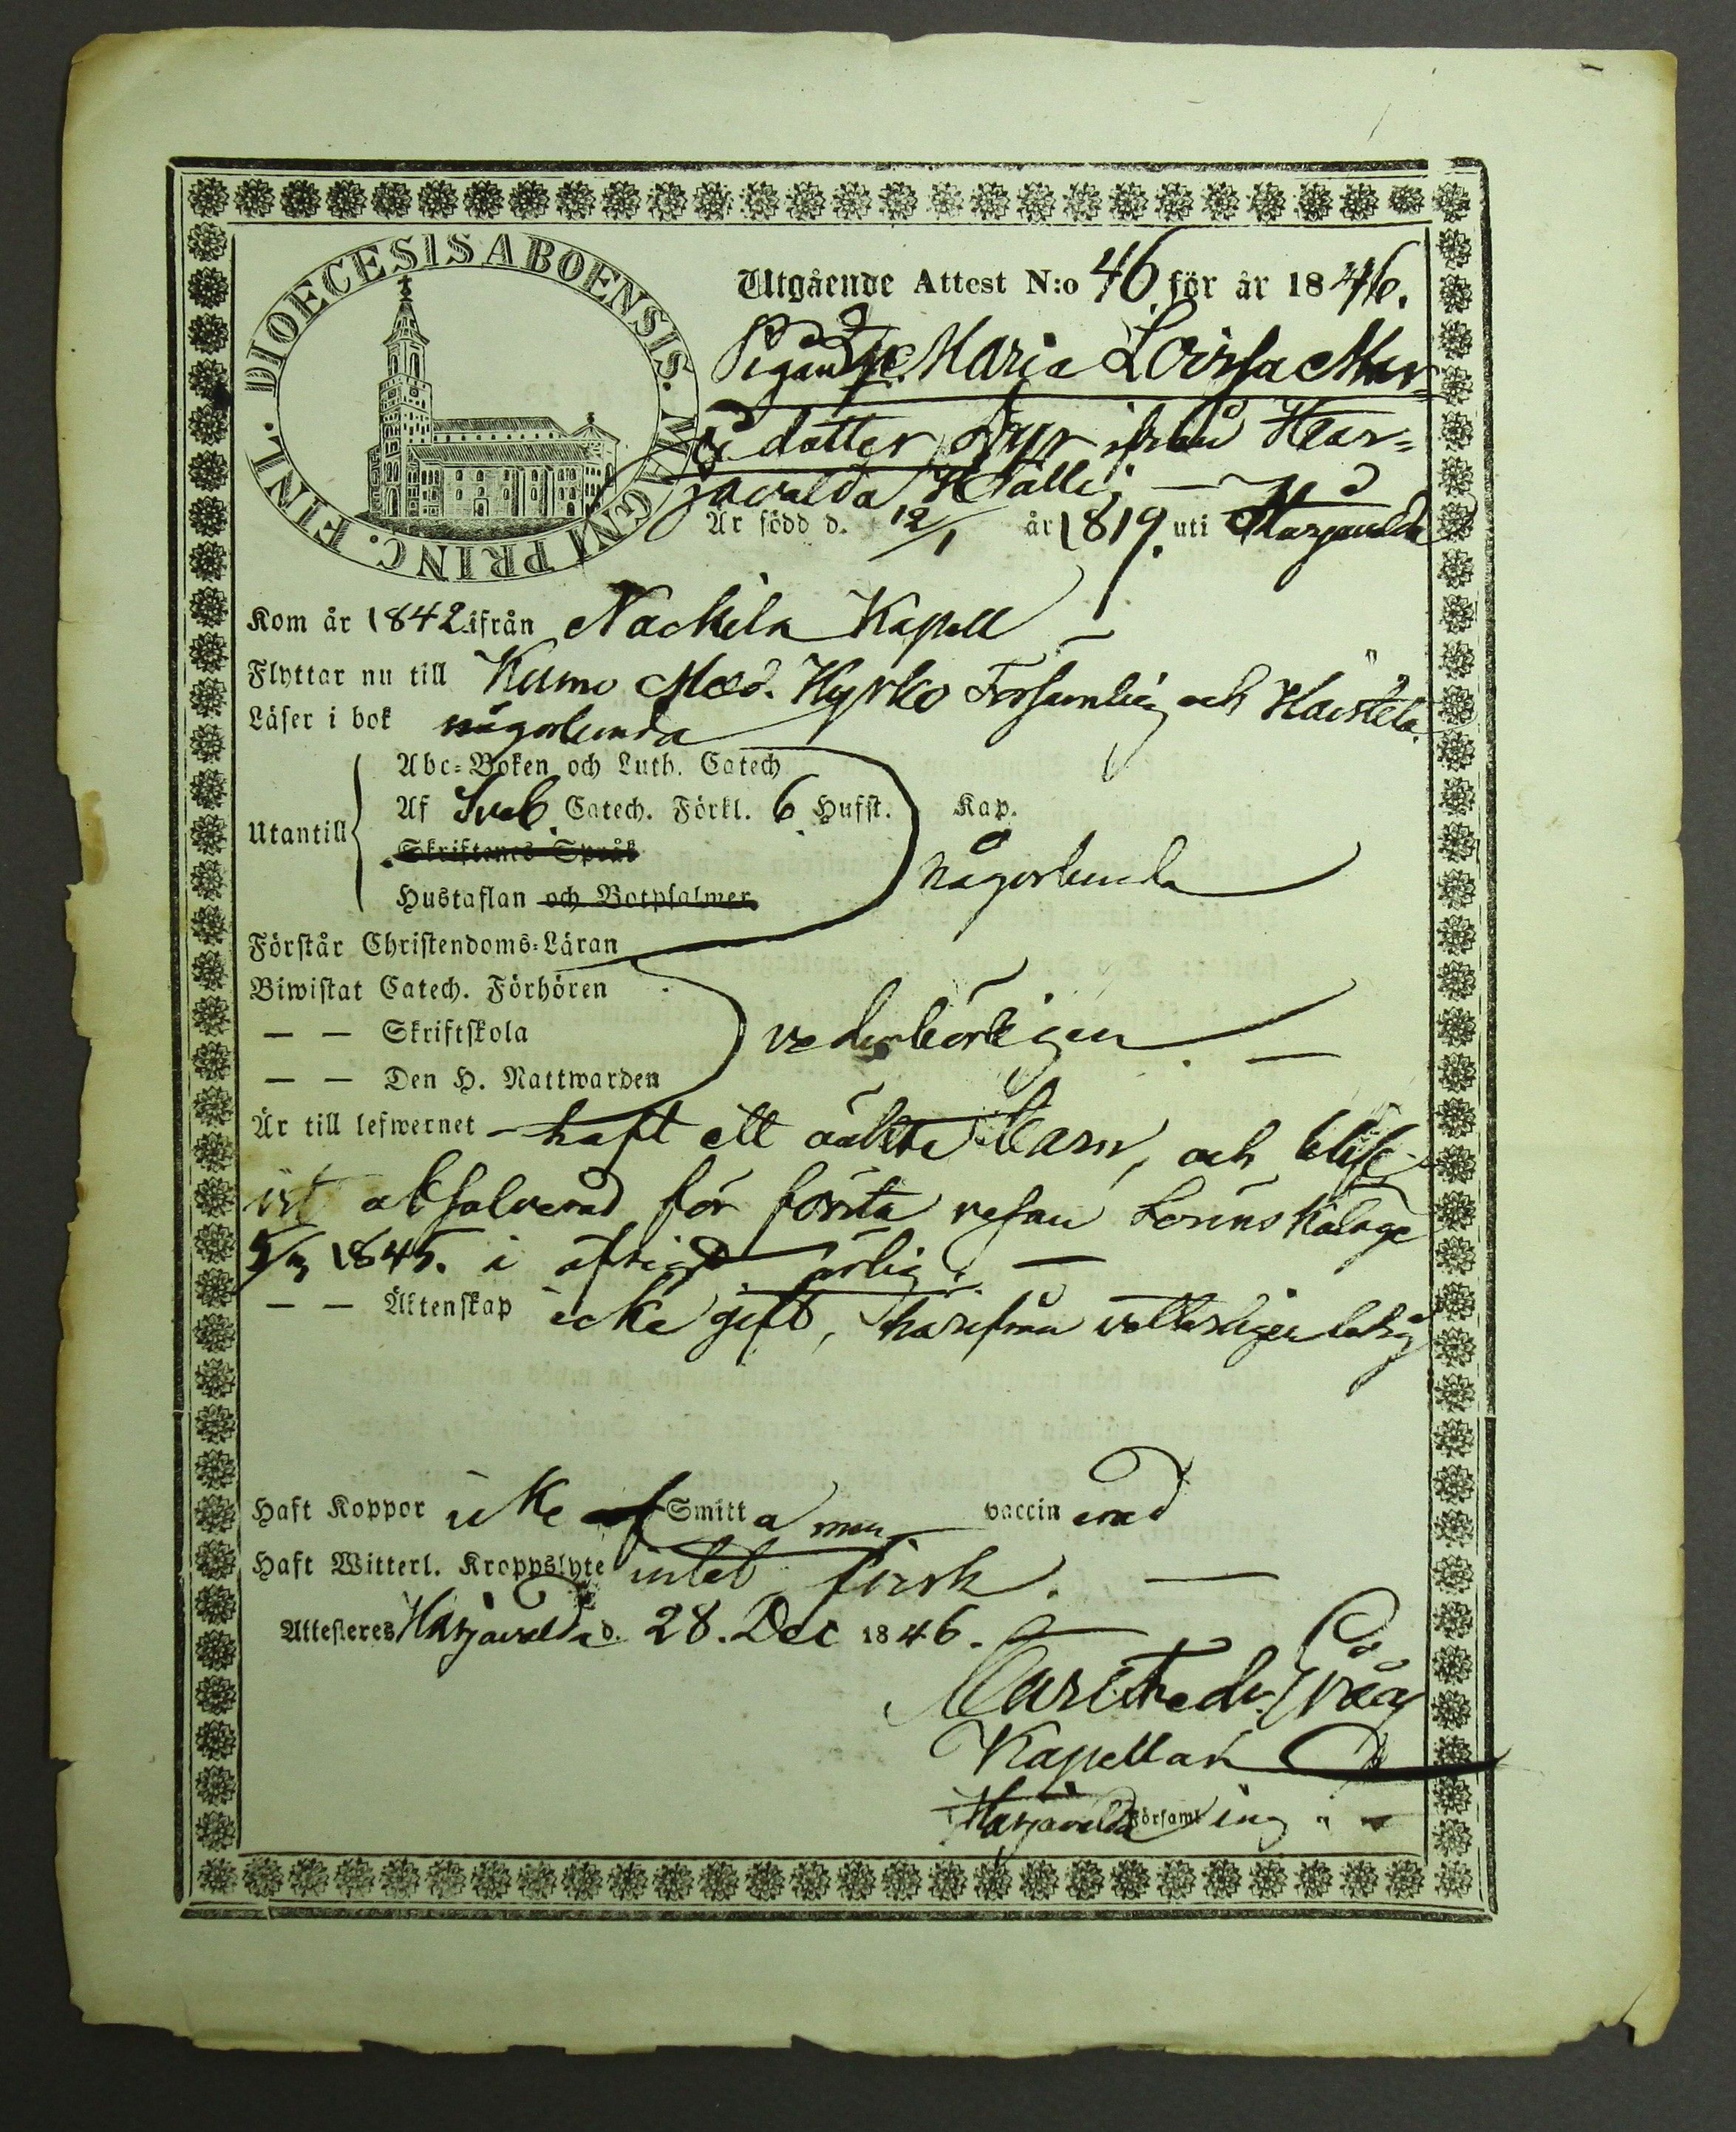 DIOECESIS ABOENSIS. MAGNI PRINC. FINL.
Utgående Attest N:o 46 för år 1846.
Pigan Maria Lovisa
dotter ifrån Har=
javalda
Är född d. 12/1 år 1819. uti Harjavalda
Kom år 1842 ifrån Nackila Kapell
Flyttar nu till Kumo Mod. Kyrko Församling och
Läser i bok någorlunda
Utantill
Abc=Boken och Luth. Catech
Af Sveb. Catech. Förkl. 6 Hufst. Kap.
Skriftenes Språk
Hustaflan och Botpsalmer
någorlunda
Förstår Christendoms=Läran
Biwistat Catech. Förhören
— — Skriftskola
— — Den H. Nattwarden
vederbörligen
Är till lefwernet haft ett oäkta barn, och blif=
vit absolverad för första resan
1845. i öfrigt ärlig.
— — Äktenskap icke gift, härifrån ledig
Haft Koppor icke af Smitta men vaccinerad
Haft Witterl. Kroppslyte intet
Attesteres Harjavalda d. 28. Dec 1846.
Kapellan
Harjavalda Församling